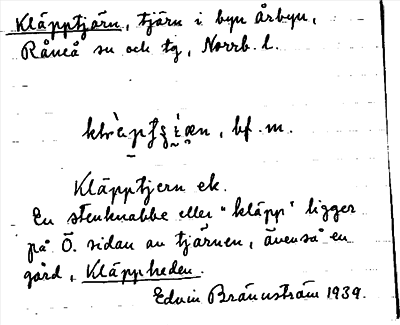 Kläpptjärn, tjärn i byn Årbyn,
Råneå sn och tg, Norrb. l.
bf. m.
Kläpptjern ek.
En stenknabbe eller "kläpp" ligger
på Ö. sidan av tjärnen, ävenså en
gård, Kläppheden.
Edvin Brännström 1939.